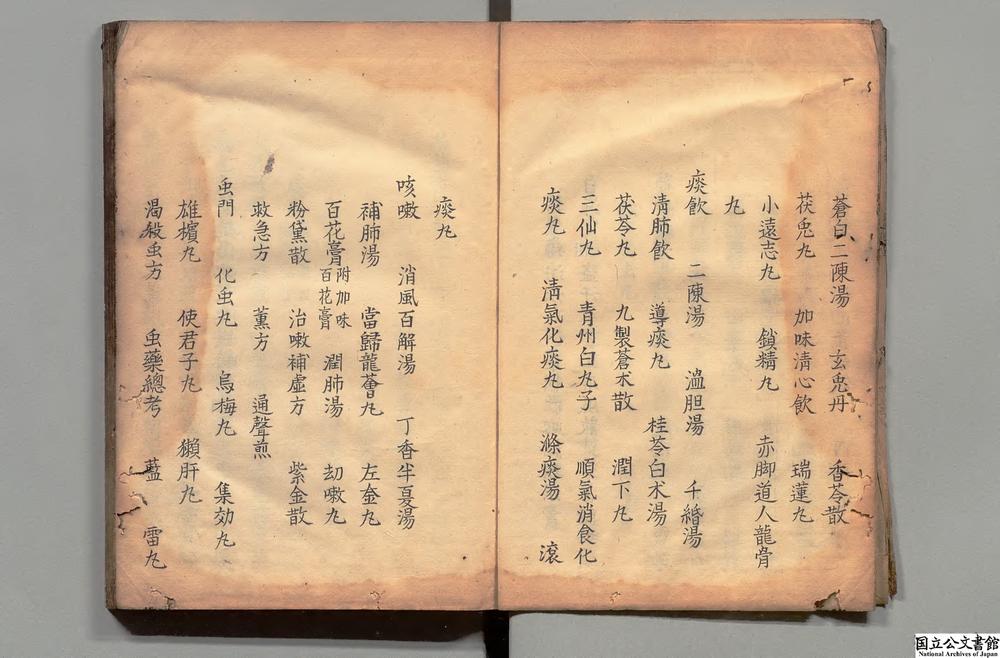 蒼白二陳湯 玄兎丹 香苓散
茯兎丸 加味清心飲 瑞蓮丸
小遠志丸 鎖精丸 赤脚道人龍骨
丸
痰飲 二陳湯 溫胆湯 千緡湯
清肺飲 導痰丸 桂苓白术湯
茯苓丸 九製蒼术散 潤下丸
三仙丸 青州白丸子 順氣消食化
痰丸 清氣化痰丸 滌痰湯 滾
痰丸
咳嗽 消風百解湯 丁香半夏湯
補肺湯 當歸龍薈丸 左金丸
百花膏附加味百花膏 潤肺湯 劫嗽丸
粉黛散 治嗽補虛方 紫金散
救急方 薰方 通聲煎
虫門 化虫丸 烏梅丸 集効丸
雄檳丸 使君子丸 獺肝丸
渴殺虫方 虫藥總考 藍 雷丸
国立公文書館
National Archives of Japan